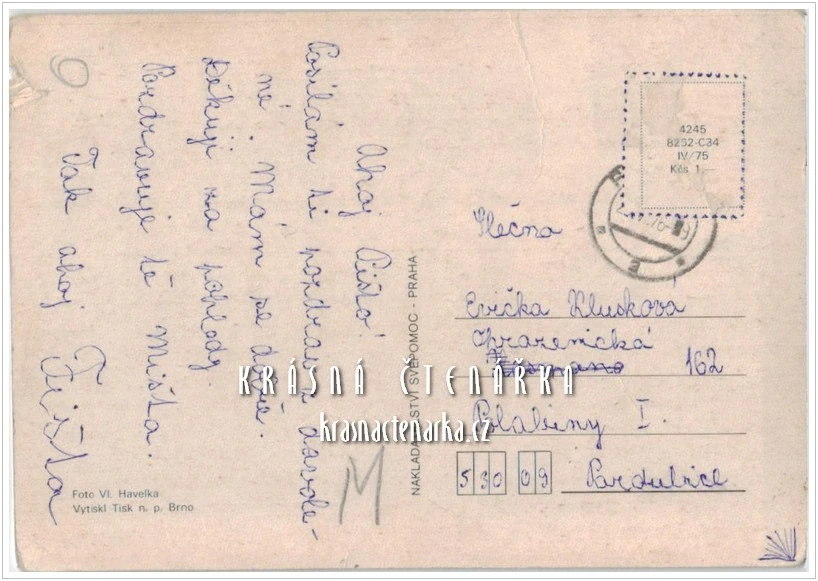 Ahoj Pišto!
Posílám ti pozdrav z dovole-
né. Mám se dobře.
Děkuji za pohledy.
Pozdravuje tě Mišta.
Tak ahoj
Mišta
NAKLADATELSTVÍ SVÉPOMOC - PRAHA
4245
8262-C34
IV/75
Kčs 1,-
Slečna
Evička Klusková
162
Polabiny I.
530 09 Pardubice
KRÁSNÁ ČTENÁŘKA
krasnactenarka.cz
M
Foto Vl. Havelka
Vytiskl Tisk n. p. Brno